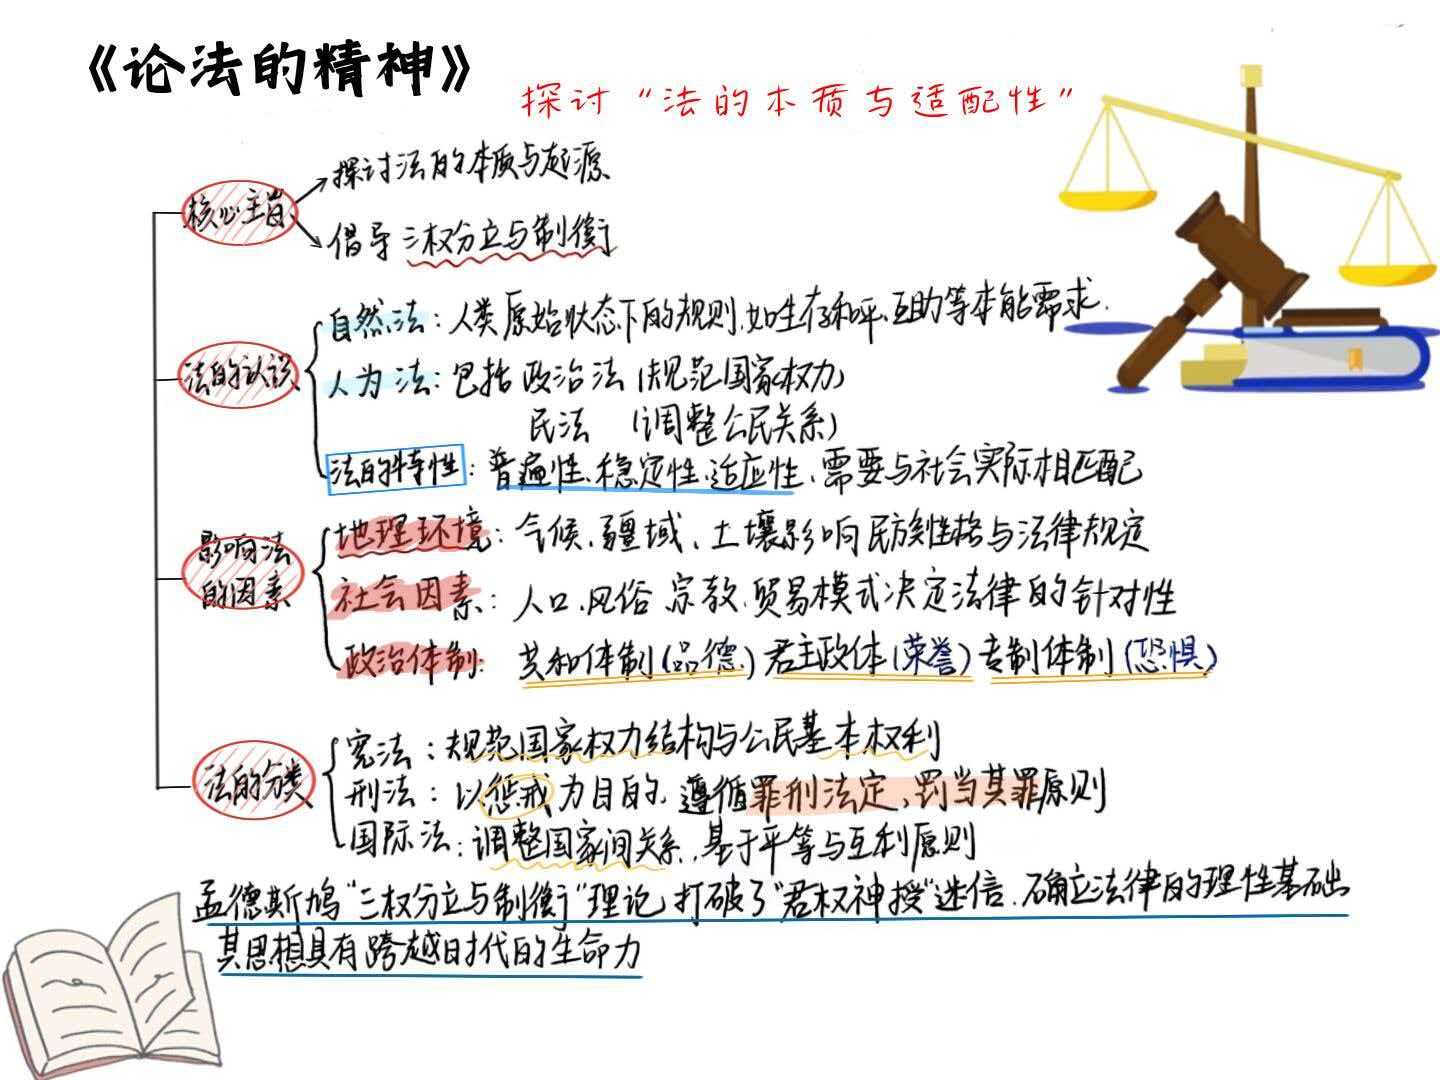 《论法的精神》
探讨“法的本质与适配性”
核心主旨
探讨法的本质与起源
倡导三权分立与制衡
法的认识
自然法：人类原始状态下的规则，如生存和平、互助等本能需求.
人为法：包括政治法（规范国家权力）
民法（调整公民关系）
法的特性：普遍性、稳定性、适应性，需要与社会实际相匹配
影响法
的因素
地理环境：气候、疆域、土壤影响民族性格与法律规定
社会因素：人口、风俗、宗教、贸易模式决定法律的针对性
政治体制：共和体制(品德)君主政体(荣誉)专制体制(恐惧)
法的分类
宪法：规范国家权力结构与公民基本权利
刑法：以惩戒为目的，遵循罪刑法定、罚当其罪原则
国际法：调整国家间关系，基于平等与互利原则
孟德斯鸠“三权分立与制衡”理论，打破了“君权神授”迷信，确立法律的理性基础
其思想具有跨越时代的生命力